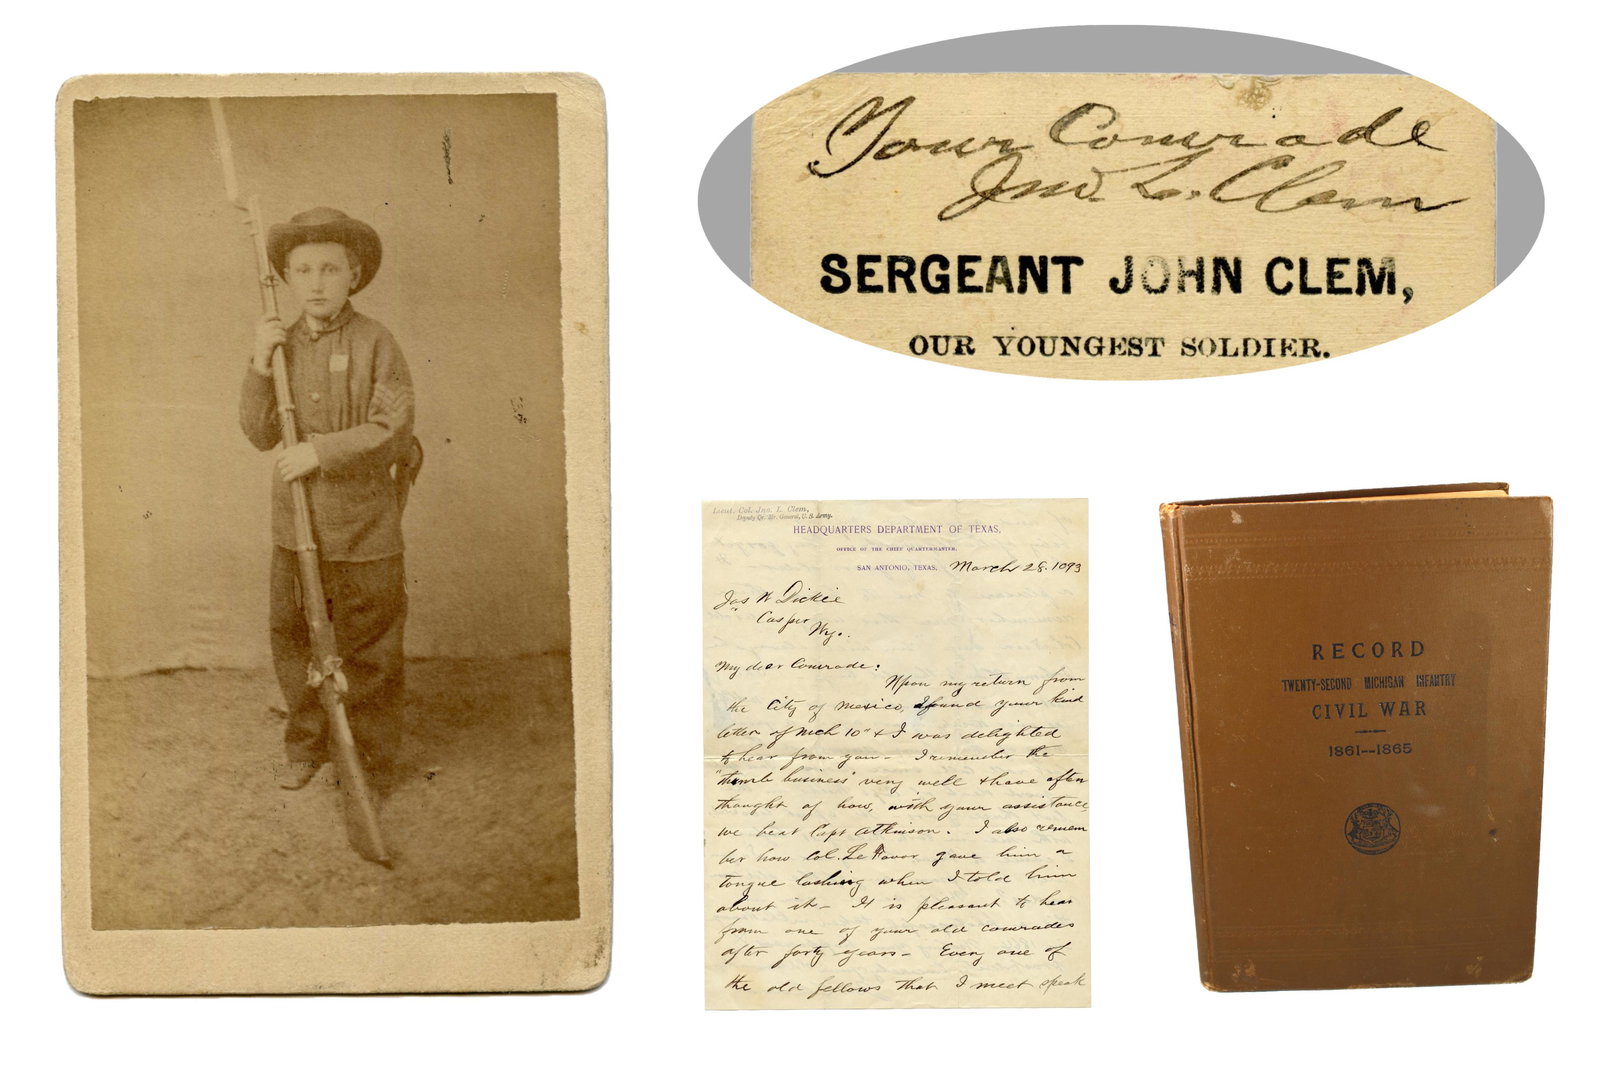 Your Comrade
Jno. L. Clem
SERGEANT JOHN CLEM,
OUR YOUNGEST SOLDIER.
Lieut. Col. Jno. L. Clem,
Deputy Qr. Mr. General, U. S. Army.
HEADQUARTERS DEPARTMENT OF TEXAS,
OFFICE OF THE CHIEF QUARTERMASTER,
SAN ANTONIO, TEXAS, March 28.
Jas W Dickie
Casper
Wyo.
My dear Comrade:
Upon my return from
the City of Mexico, I found your kind
letter of Mch 10" & I was delighted
to hear from you – I remember the
"thumb business" very well & have often
thought of how, with your assistance,
we beat Capt Atkinson. I also remem
ber how Col. Le Favor gave him a
tongue lashing when I told him
about it – It is pleasant to hear
from one of your old comrades
after forty years – Every one of
the old fellows that I meet speak
RECORD
TWENTY-SECOND MICHIGAN INFANTRY
CIVIL WAR
1861--1865